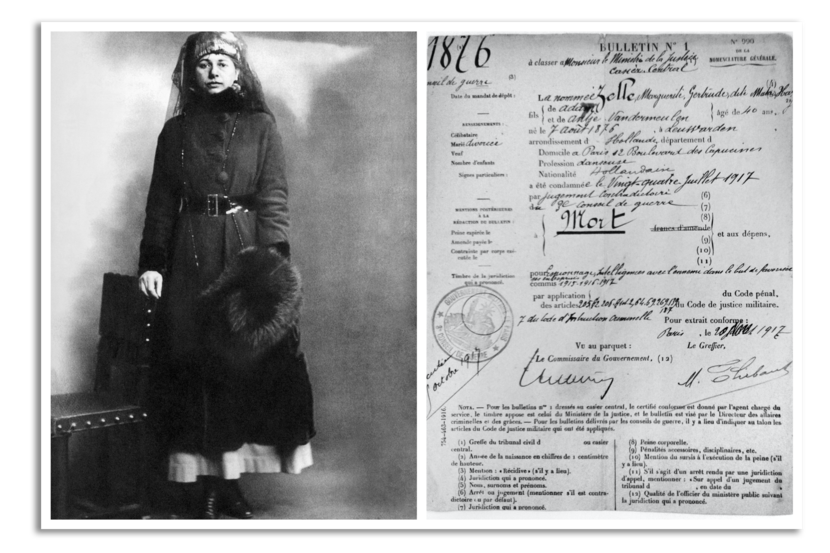 1876
BULLETIN N° 1
à classer à Monsieur le Ministre de la Justice
Casier Central
N° 990
DE LA
NOMENCLATURE GÉNÉRALE.
de guerre
(3)
Date du mandat de dépôt :
La nommée Zelle, Marguerite, Gertrude, dite Mata
RENSEIGNEMENTS :
fils de Adam
et de Antje Vandermeulen
âgé de 40 ans,
Célibataire
Marié divorcée
Veuf
Nombre d'enfants
Signes particuliers :
né le 7 Août 1876, à Leuwarden
arrondissement d Hollande, département d
Domicile à Paris 12 Boulevard des Capucines
Profession danseuse
Nationalité Hollandaise
a été condamnée le Vingt-quatre Juillet 1917
par jugement contradictoire (6)
du 3e conseil de guerre (7)
MENTIONS POSTÉRIEURES
À LA
RÉDACTION DU BULLETIN :
à Mort (8)
francs d'amende
(9) et aux dépens,
(10)
(11)
Peine expirée le
Amende payée le
Contrainte par corps exécutée le
Timbre de la juridiction
qui a prononcé.
pour Espionnage, Intelligences avec l'ennemi dans le but de favoriser
ses entreprises
commis 1915-1916-1917
par application
des articles
du Code pénal,
du Code de justice militaire.
7 du Code d'Instruction criminelle
Pour extrait conforme :
Paris, le 1917
Vu au parquet :
Le Greffier,
Le Commissaire du Gouvernement, (12)
NOTA. — Pour les bulletins n° 1 dressés au casier central, le certifié conforme est donné par l'agent chargé du
service, le timbre apposé est celui du Ministère de la justice, et le bulletin est visé par le Directeur des affaires
criminelles et des grâces. — Pour les bulletins délivrés par les conseils de guerre, il y a lieu d'indiquer au talon les
articles du Code de justice militaire qui ont été appliqués.
(1) Greffe du tribunal civil d ou casier
central.
(2) Année de la naissance en chiffres de 1 centimètre
de hauteur.
(3) Mention : « Récidive » (s'il y a lieu).
(4) Juridiction qui a prononcé.
(5) Nom, surnoms et prénoms.
(6) Arrêt ou jugement (mentionner s'il est contradictoire
ou par défaut).
(7) Juridiction qui a prononcé.
(8) Peine corporelle.
(9) Pénalités accessoires, disciplinaires, etc.
(10) Mention du sursis à l'exécution de la peine (s'il
y a lieu).
(11) S'il s'agit d'un arrêt rendu par une juridiction
d'appel, mentionner : « Sur appel d'un jugement du
tribunal d , en date du
(12) Qualité de l'officier du ministère public suivant
la juridiction qui a prononcé.